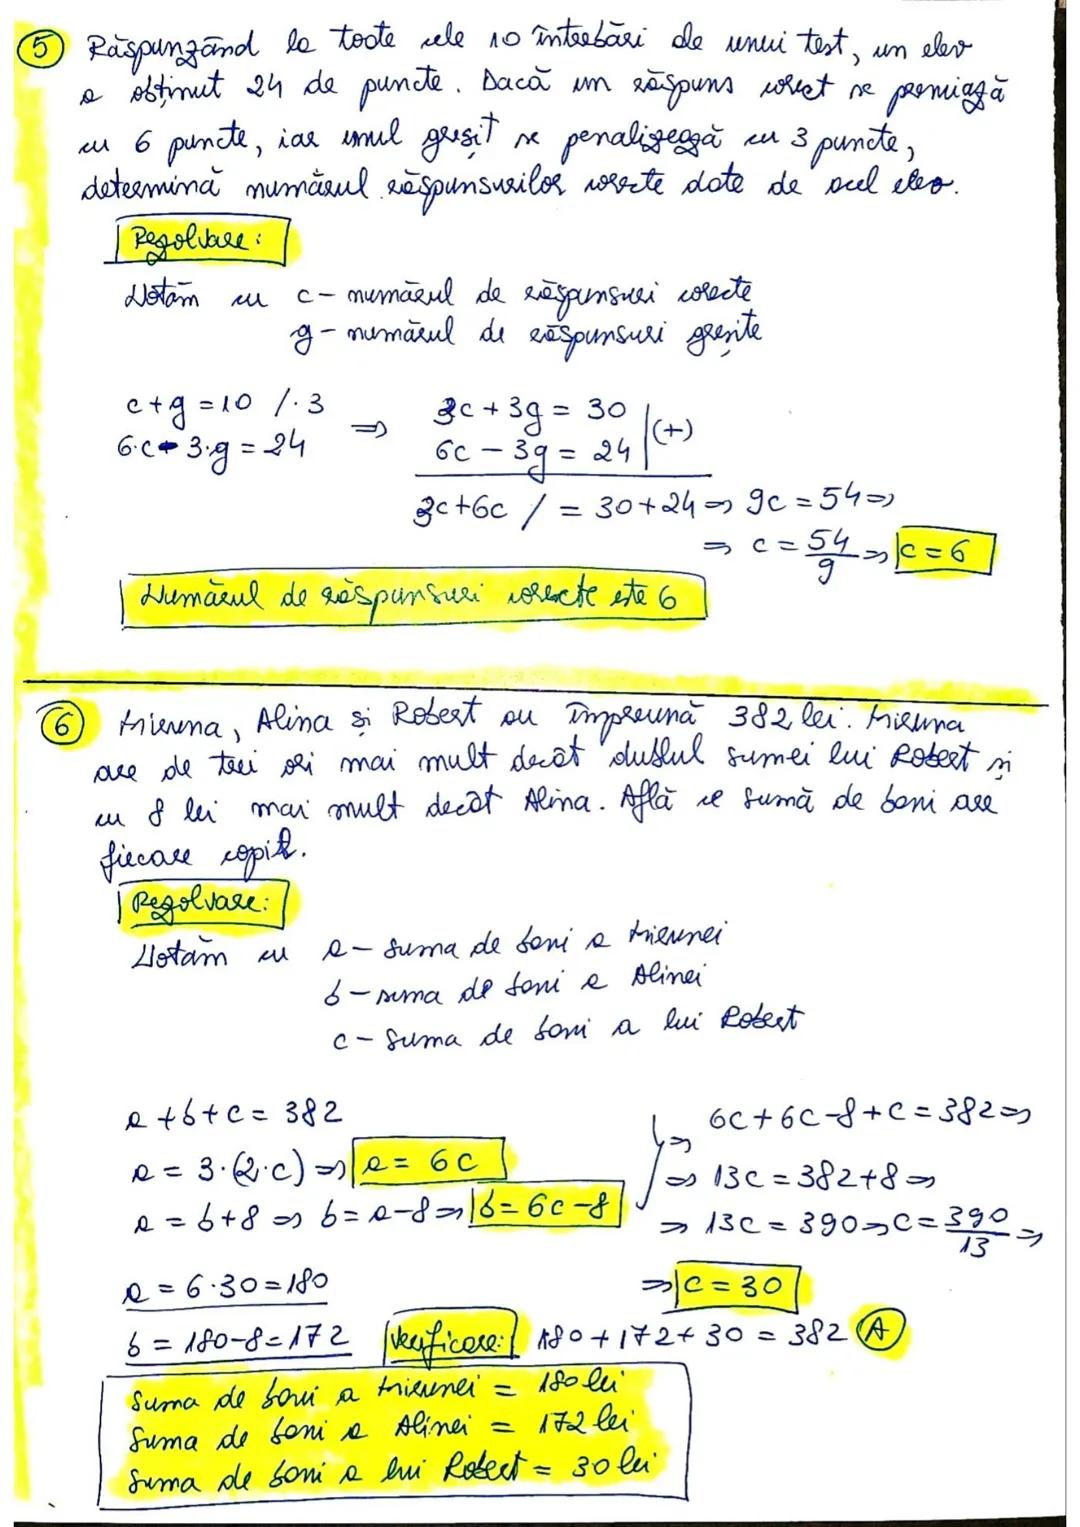 5 Răspunzând la toate cele 10 întrebări ale unui test, un elev
a obținut 24 de puncte. Dacă un răspuns corect se premiază
cu 6 puncte, iar unul greșit se penalizează cu 3 puncte,
determină numărul răspunsurilor corecte date de acel elev.
Rezolvare:
Notăm cu c - numărul de răspunsuri corecte
g - numărul de răspunsuri greșite
c+g = 10 /·3 ⇒ 3c + 3g = 30
6·c - 3·g = 24 6c - 3g = 24 (+)
3c+6c / = 30+24 ⇒ 9c = 54 ⇒
⇒ c = 54/9 ⇒ c = 6
Numărul de răspunsuri corecte este 6
6 Miruna, Alina și Robert au împreună 382 lei. Miruna
are de trei ori mai mult decât dublul sumei lui Robert și
cu 8 lei mai mult decât Alina. Află ce sumă de bani are
fiecare copil.
Rezolvare:
Notăm cu a - suma de bani a Mirunei
b - suma de bani a Alinei
c - suma de bani a lui Robert
a+b+c = 382 ⇒ 6c+6c-8+c = 382 ⇒
a = 3·(2·c) ⇒ a = 6c ⇒ 13c = 382+8 ⇒
a = b+8 ⇒ b = a-8 ⇒ b = 6c-8 ⇒ 13c = 390 ⇒ c = 390/13 ⇒
a = 6·30 = 180 ⇒ c = 30
b = 180-8 = 172 Verificare: 180+172+30 = 382 A
Suma de bani a Mirunei = 180 lei
Suma de bani a Alinei = 172 lei
Suma de bani a lui Robert = 30 lei